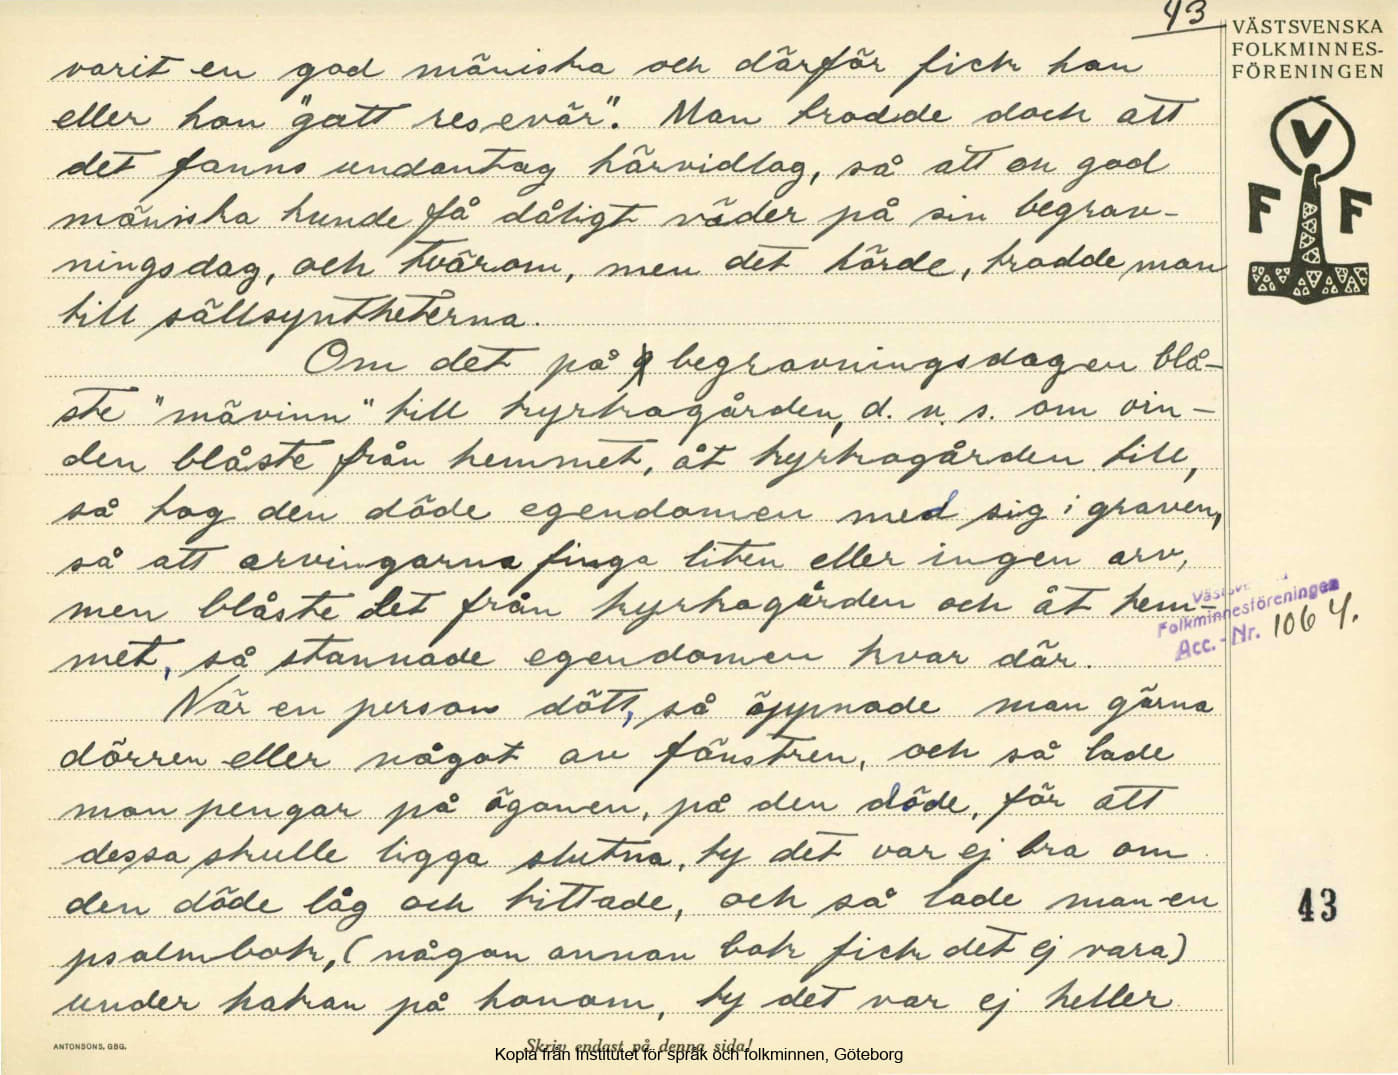 43
VÄSTSVENSKA
FOLKMINNES-
FÖRENINGEN
V
F F
varit en god mäniska och därför fick han
eller hon "gott resevär". Man trodde dock att
det fanns undantag härvidlag, så att en god
mäniska kunde få dåligt väder på sin begrav-
ningsdag, och tvärom, men det hörde, trodde man
till sällsyntheterna.
Om det på begravningsdagen blå-
ste "mävinn" till kyrkogården, d. v. s. om vin-
den blåste från hemmet, åt kyrkogården till,
så tog den döde egendomen med sig i graven,
så att arvingarna finga liten eller ingen arv,
men blåste det från kyrkogården och åt hem-
met, så stannade egendomen kvar där.
När en person dött, så öppnade man gärna
dörren eller något av fönstren, och så lade
man pengar på ögonen, på den döde, för att
dessa skulle ligga slutna, ty det var ej bra om
den döde låg och tittade, och så lade man en
psalmbok, (någon annan bok fick det ej vara)
under hakan på honom, ty det var ej heller
Folkminnesföreningen
Acc.-Nr. 1064.
43
ANTONSONS, GBG.
Skriv endast på denna sida!
Kopia från Institutet för språk och folkminnen, Göteborg